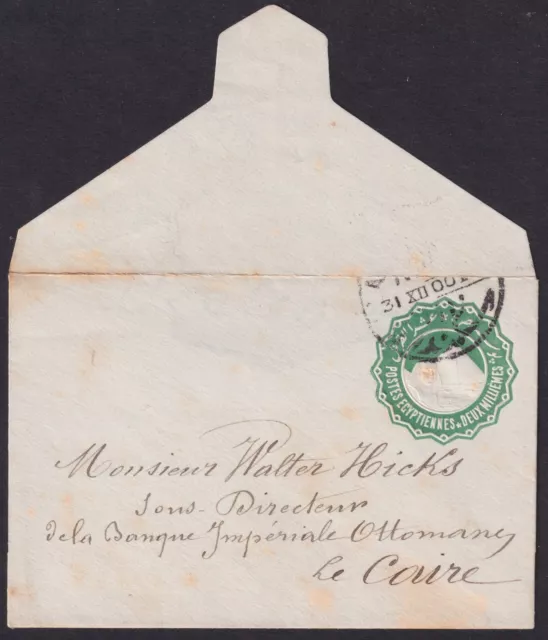 31 XII 00
POSTES EGYPTIENNES ★ DEUX MILLIEMES
Monsieur Walter Hicks
Sous-Directeur
de la Banque Impériale Ottomane
Le Caire